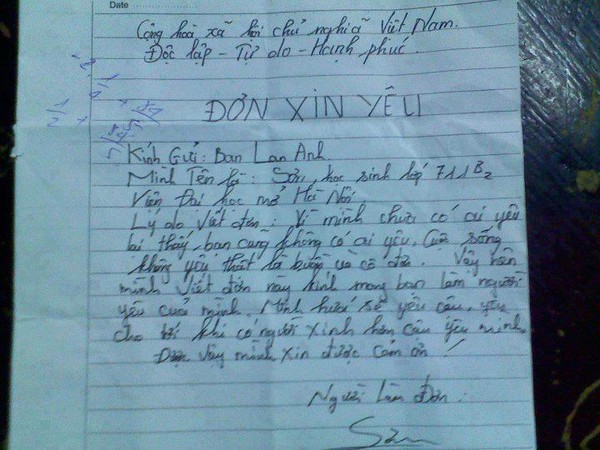 Date
Cộng hoà xã hội chủ nghĩa Việt Nam.
Độc lập - Tự do - Hạnh phúc.
ĐƠN XIN YÊU
Kính Gửi: Bạn Lan Anh
Mình Tên là: Sơn, học sinh lớp 711B2
Viện Đại học mở Hà Nội
Lý do Viết đơn: Vì mình chưa có ai yêu
lại thấy bạn cũng không có ai yêu. Cuộc sống
không yêu thật là buồn và cô đơn. Vậy nên
mình Viết đơn này kính mong bạn làm người
yêu của mình. Mình hứa sẽ yêu cậu, yêu
cho tới khi có người xinh hơn cậu yêu mình.
Được vậy mình xin được cám ơn!
Người làm Đơn:
Sơn